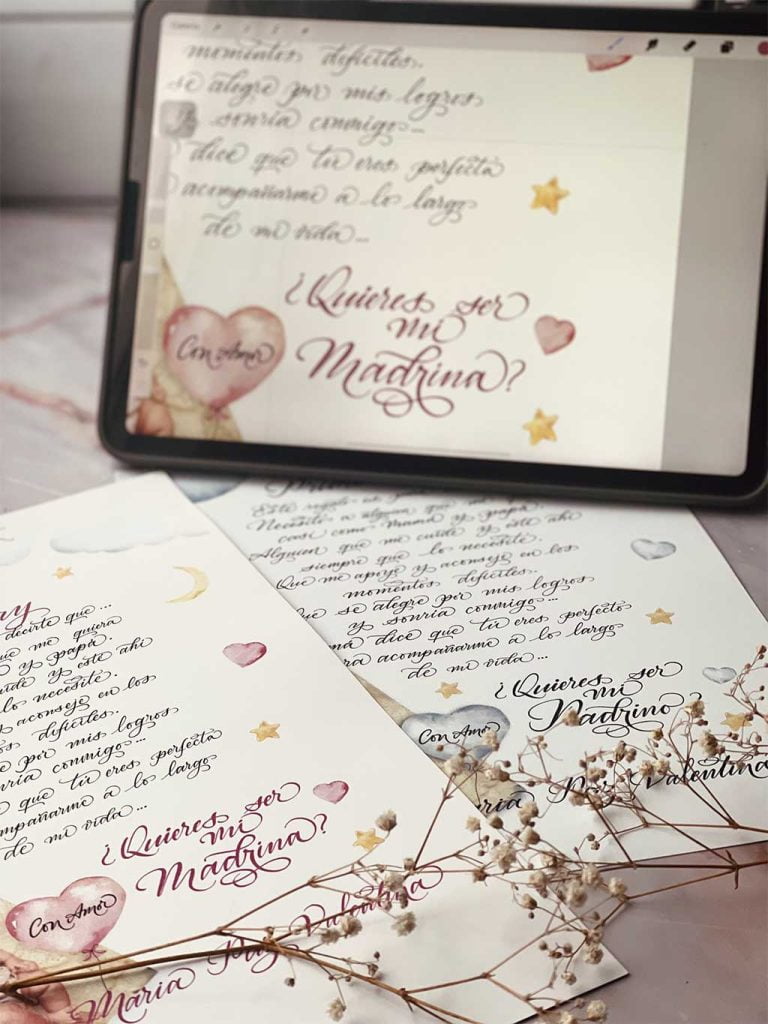 momentos difíciles.
se alegre por mis logros
y sonría conmigo...
dice que tú eres perfecta
acompañarme a lo largo
de mi vida...
¿Quieres ser
mi
Madrina?
Con Amor
Necesito a alguien que me quiera
casi como mamá y papá.
Alguien que me cuide y esté ahí
siempre que lo necesite.
Que me apoye y aconseje en los
momentos difíciles..
que se alegre por mis logros
y sonría conmigo...
má dice que tú eres perfecto
ra acompañarme a lo largo
de mi vida...
¿Quieres ser
mi
Padrino?
Con Amor
ría Paz Valentina
ay
decirte que...
que me quiera
y papá.
uide y esté ahí
lo necesite.
y aconseje en los
s difíciles.
e por mis logros
nría conmigo...
que tú eres perfecta
mpañarme a lo largo
de mi vida...
¿Quieres ser
mi
Madrina?
Con Amor
María Paz Valentina